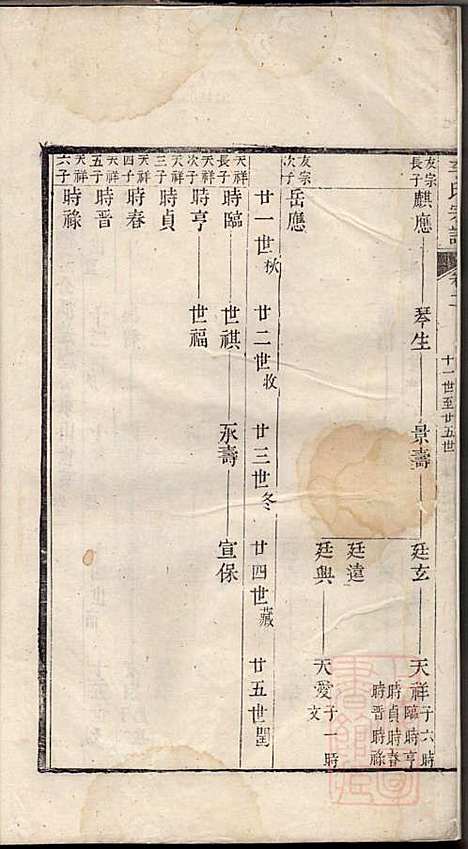 氏宗譜
卷二
十一世至廿五世
友宗長子 麒應 琴生 景壽 廷玄 天祥 子六時臨時亨時貞時春時晋時祿
廷遠
廷興 天愛 子一時文
友宗次子 岳應
廿一世秋 廿二世收 廿三世冬 廿四世藏 廿五世閏
天祥長子 時臨 世祺 永壽 宣保
天祥次子 時亨 世福
天祥三子 時貞
天祥四子 時春
天祥五子 時晋
天祥六子 時祿